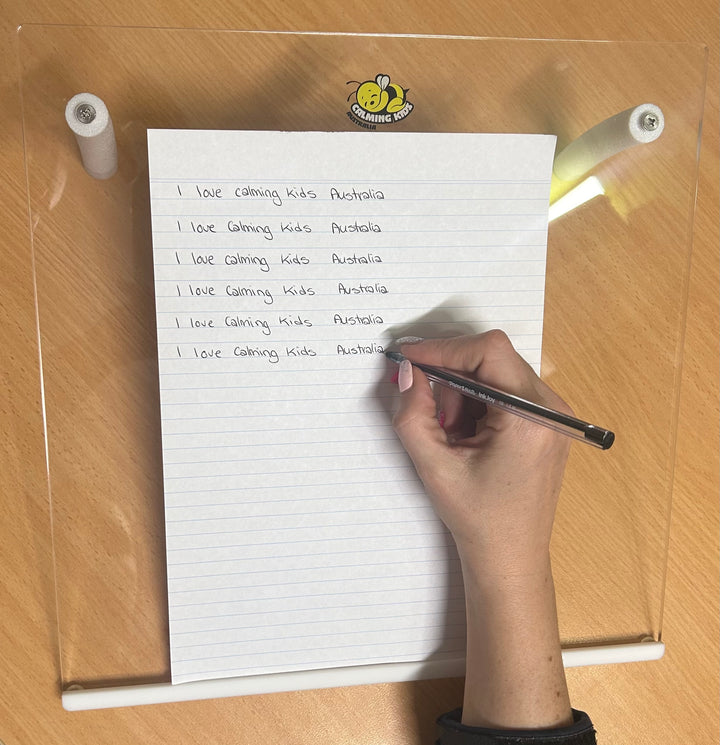 CALMING KIDS
AUSTRALIA
I love calming kids Australia
I love Calming kids Australia
I love Calming kids Australia
I love Calming kids Australia
I love Calming kids Australia
I love Calming kids Australia
PaperMate InkJoy